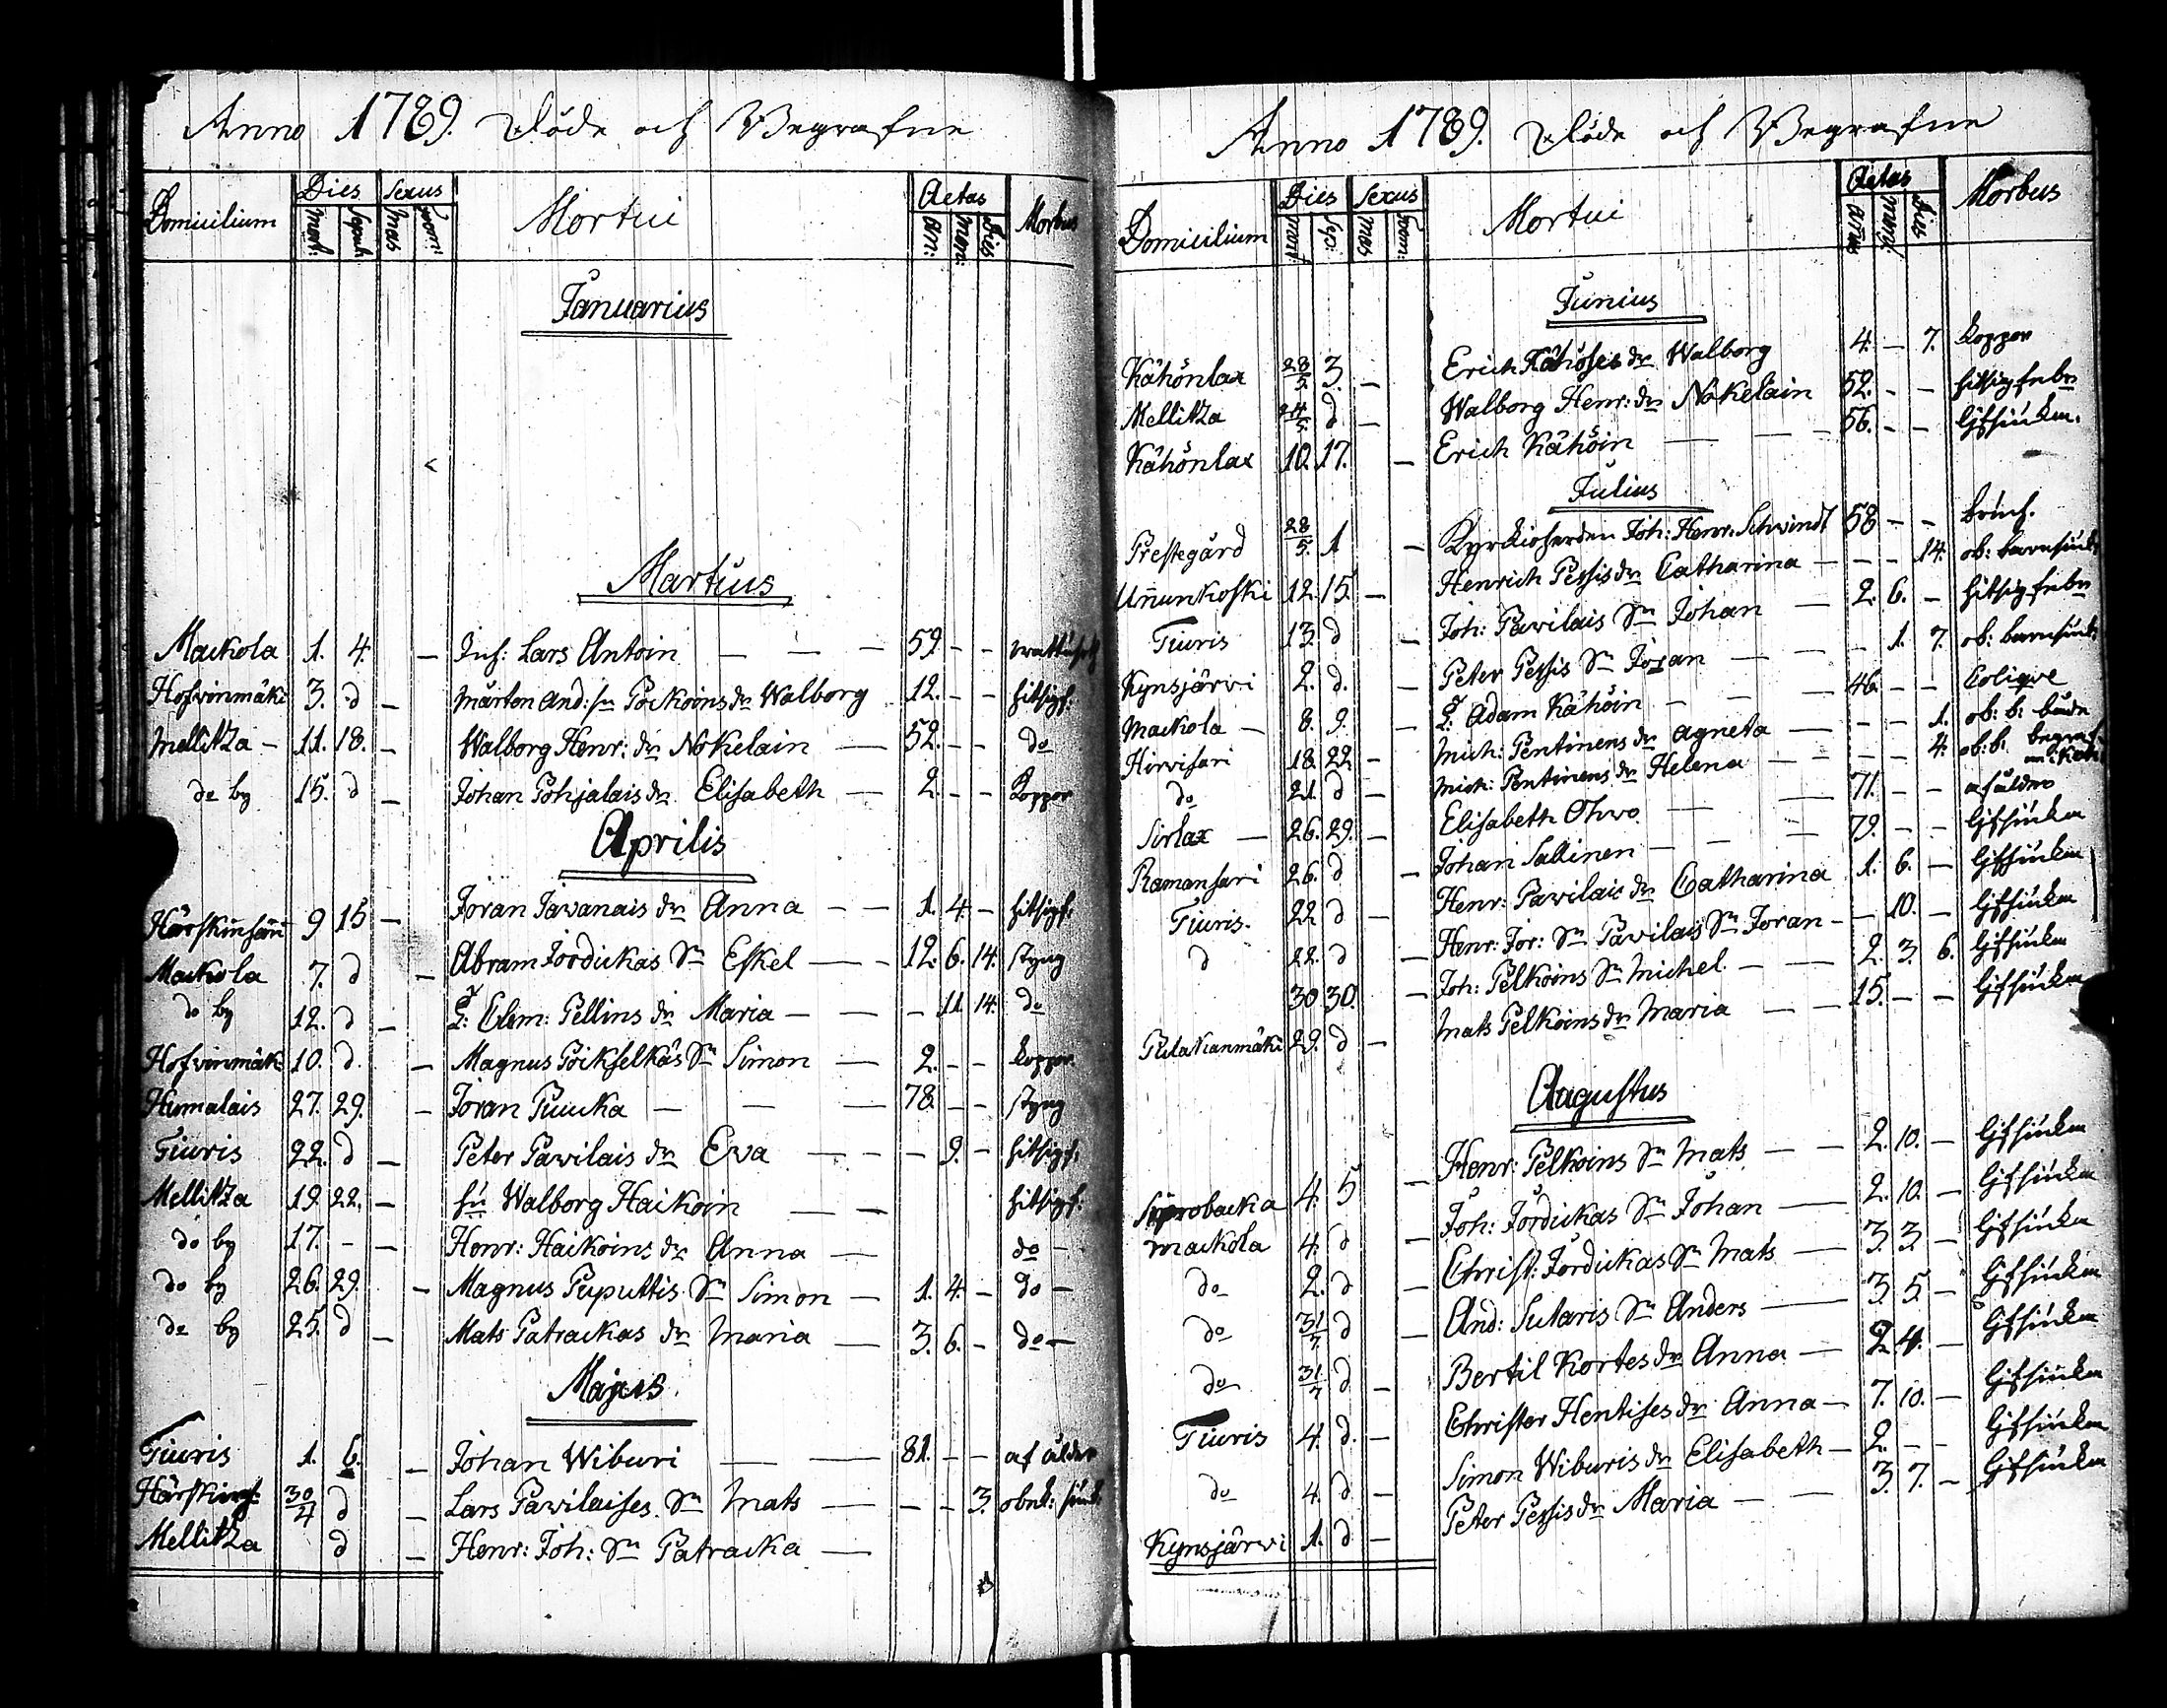 Anno 1789. Döde och Begrafne
Domicilium Dies Sexus Mortui Aetas Morbus
Mort: Sepult Mas Foem: An: Men: Dies
Januarius
Martius
Mackola 1. 4. — Inh: Lars Antoin — — — 59. - - wattusot
Hofvinmäki 3. d — Mårten And: sn Pöckoins dr Walborg 12. - - hitsigf:
Mellitza - 11. 18. — Walborg Henr: dr Nokelain — 52. - - do
do by 15. d — Johan Pohjalais dr Elisabeth — 2. - - Koppor
Aprilis
9 15 — Jöran Jävanais dr Anna — — 1. 4. - hitsigf:
Mackola 7. d — Abram Jordickas Sn Eskel — — 12. 6. 14. styng
do by 12. d — Clem: Pellins dr Maria — — — 11. 14. do
Hofvinmäki 10. d. — Magnus Poikselkäs Sn Simon — 2. - - koppor
Humalais 27. 29. — Jöran Puucka — — — 78. - - styng
Tiuris 22. d — Peter Pavilais dr Eva — — — 9. - hitsigf:
Mellitza 19. 22. — Walborg Haikoin — — hitsigf:
do by 17. - — Henr: Haikoins dr Anna — do -
do by 26. 29. — Magnus Puputtis Sn Simon — 1. 4. - do -
do by 25. d — Mats Patrackas dr Maria — 3. 6. - do —
Majus.
Tiuris 1. 6. — Johan Wiburi — — 81. - - af ålder
30/4 d — Lars Pavilaises Sn Mats — - - 3.
Mellitza d — Henr: Joh: Sn Patracka —
Anno 1789. Döde och Begrafne
Domicilium Dies Sexus Mortui Aetas Morbus
Mort: Sep: Mas Foem: Annus Mens: Dies
Junius
Kähönlax 28/5. 3. — Erich Kähöses dr Walborg 4. — 7. koppor
Mellitza 24/5. d — Walborg Henr: dr Nokelain 52. - - hitsigfeber
Kähönlax 10. 17. — Erich Kähöin — — — 56. - - lifsiuka.
Julius
Prestegård 28/5. 1 — Kyrckioherden Joh: Henr: Schwindt 58 - - bråck.
Uñunkoski 12. 15. — Henrich Pessis dr Catharina — - - 14. ob: barnsiuk:
Tiuris 13. d — Joh: Pavilais Sn Johan — 2. 6. - hitsigfeber
Kynsjärvi 2. d. — Peter Pessis Sn Jöran — — - 1. 7. ob: barnsiuk:
Mackola — 8. 9. — Adam Kähöin — — — 46. - - Colique
Hirvisari 18. 22. — Mich: Pentinens dr Agneta — - - 1. ob: b:
do 21. d — Mich: Pentinens dr Helena — - - 4. ob: b:
Sirlax — 26. 29. — Elisabeth Ohvo — — 71. - - af ålder
Ramansari 26. d — Johan Sallinen — — — 79. - - lifsiukan
Tiuris. 22 d — Henr: Pavilais dr Catharina 1. 6. — lifsiukan
d 22. d — Henr: Jör: Sn Pavilais Sn Jöran — - 10. - lifsiukan
30 30. — Joh: Pelkoins Sn Michel — — 2. 3. 6. lifsiukan
29. d — Mats Pelkoins dr Maria — — 15. - - lifsiukan
Augustus
4. 5 — Henr: Pelkoins Sn Mats — — 2. 10. — lifsiukan
Mackola 4. d — Joh: Jordickas Sn Johan — 2. 10. - lifsiukan
do 2. d — Christ: Jordickas Sn Mats — 3. 3. - lifsiukan
do 31/7. d — And: Sutaris Sn Anders — 3. 5. - lifsiukan
do 31/7 d — Bertil Kortes dr Anna — 2. 4. — lifsiukan
Tiuris 4. d. — Christer Hentises dr Anna — 7. 10. — lifsiukan
do 4. d — Simon Wiburis dr Elisabeth — 2. - - lifsiukan
Kynsjärvi 1. d — Peter Pessis dr Maria — — 3. 7. - lifsiukan